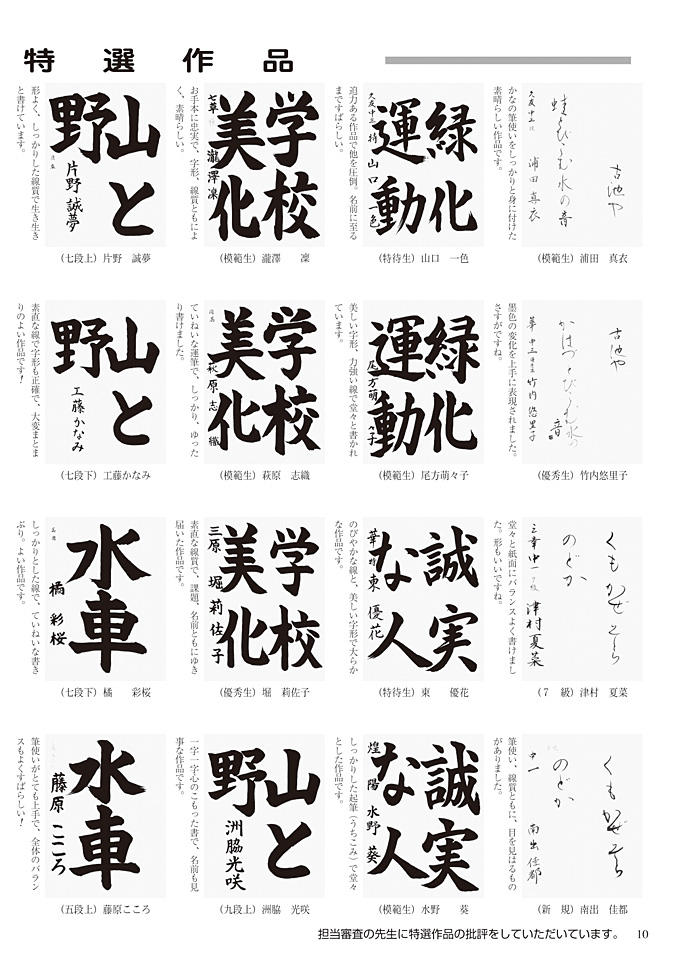 特選作品
古池や
蛙とびこむ水の音
浦田真衣
かなの筆使いをしっかりと身に付けた
素晴らしい作品です。
（模範生）浦田　真衣
緑化
運動
山口一色
迫力ある作品で他を圧倒。名前に至る
まですばらしい。
（特待生）山口　一色
学校
美化
七草
瀧澤凜
お手本に忠実で、字形、線質ともによ
く、素晴らしい。
（模範生）瀧澤　凜
山と
野
片野誠夢
形よく、しっかりした線質で生き生き
と書けています。
（七段上）片野　誠夢
古池や
かはづとびこむ水の
音
竹内悠里子
墨色の変化を上手に表現されました。
さすがですね。
（優秀生）竹内悠里子
緑化
運動
尾方萌々子
美しい字形、力強い線で堂々と書かれ
ています。
（模範生）尾方萌々子
学校
美化
萩原志織
ていねいな運筆で、しっかり、ゆった
り書けました。
（模範生）萩原　志織
山と
野
工藤かなみ
素直な線で字形も正確で、大変まとま
りのよい作品です！
（七段下）工藤かなみ
くもかぜそら
のどか
三幸中一
津村夏菜
堂々と紙面にバランスよく書けまし
た。形もいいですね。
（７　級）津村　夏菜
誠実
な人
東優花
のびやかな線と、美しい字形で大らか
な作品です。
（特待生）東　優花
学校
美化
三原
堀莉佐子
素直な線質で、課題、名前ともにゆき
届いた作品です。
（優秀生）堀　莉佐子
水車
橘彩桜
しっかりとした線で、ていねいな書き
ぶり。よい作品です。
（七段下）橘　彩桜
くもかぜそら
のどか
中一
南出佳都
筆使い、線質ともに、目を見はるもの
がありました。
（新　規）南出　佳都
誠実
な人
煌陽
水野葵
しっかりした起筆（うちこみ）で堂々
とした作品です。
（模範生）水野　葵
山と
野
洲脇光咲
一字一字心のこもった書で、名前も見
事な作品です。
（九段上）洲脇　光咲
水車
藤原こころ
筆使いがとても上手で、全体のバラン
スもよくすばらしい！
（五段上）藤原こころ
担当審査の先生に特選作品の批評をしていただいています。　10